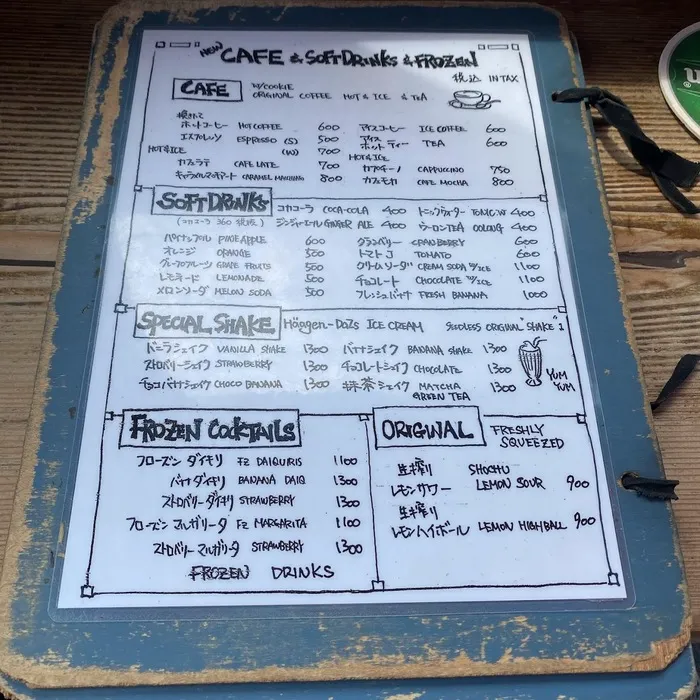 NEW CAFE & SOFT DRINKS & FROZEN
税込 IN TAX
CAFE W/COOKIE
ORIGINAL COFFEE HOT & ICE & TEA
挽きたて
ホットコーヒー HOT COFFEE 600 アイスコーヒー ICE COFFEE 600
エスプレッソ ESPRESSO (S) 500 アイス ホット ティー TEA 600
HOT&ICE (W) 700 HOT&ICE
カフェラテ CAFE LATE 700 カプチーノ CAPPUCCINO 750
キャラメルマキアート CARAMEL 800 カフェモカ CAFE MOCHA 800
SOFT DRINKS コカコーラ COCA-COLA 400 トニックウォーター TONIC.W 400
ジンジャーエール GINGER ALE 400 ウーロンTEA OOLONG 400
パイナップル PINEAPPLE 600 クランベリー CRANBERRY 600
オレンジ ORANGE 500 トマトJ TOMATO 600
グレープフルーツ GRAPE FRUITS 500 クリームソーダ CREAM SODA W/ICE 1100
レモネード LEMONADE 500 チョコレート CHOCOLATE W/ICE 1100
メロンソーダ MELON SODA 500 フレッシュバナナ FRESH BANANA 1000
SPECIAL SHAKE Häagen-Dazs ICE CREAM ORIGINAL "SHAKE"
バニラシェイク VANILLA SHAKE 1300 バナナシェイク BANANA SHAKE 1300
ストロベリーシェイク STRAWBERRY 1300 チョコレートシェイク CHOCOLATE 1300
チョコバナナシェイク CHOCO BANANA 1300 抹茶シェイク MATCHA GREEN TEA 1300
YUM YUM
FROZEN COCKTAILS
フローズン ダイキリ FZ DAIQURIS 1100
バナナ ダイキリ BANANA DAIQ 1300
ストロベリーダイキリ STRAWBERRY 1300
フローズン マルガリータ FZ MARGARITA 1100
ストロベリーマルガリータ STRAWBERRY 1300
FROZEN DRINKS
ORIGINAL FRESHLY SQUEEZED
生搾り SHOCHU
レモンサワー LEMON SOUR 900
生搾り
レモンハイボール LEMON HIGHBALL 900